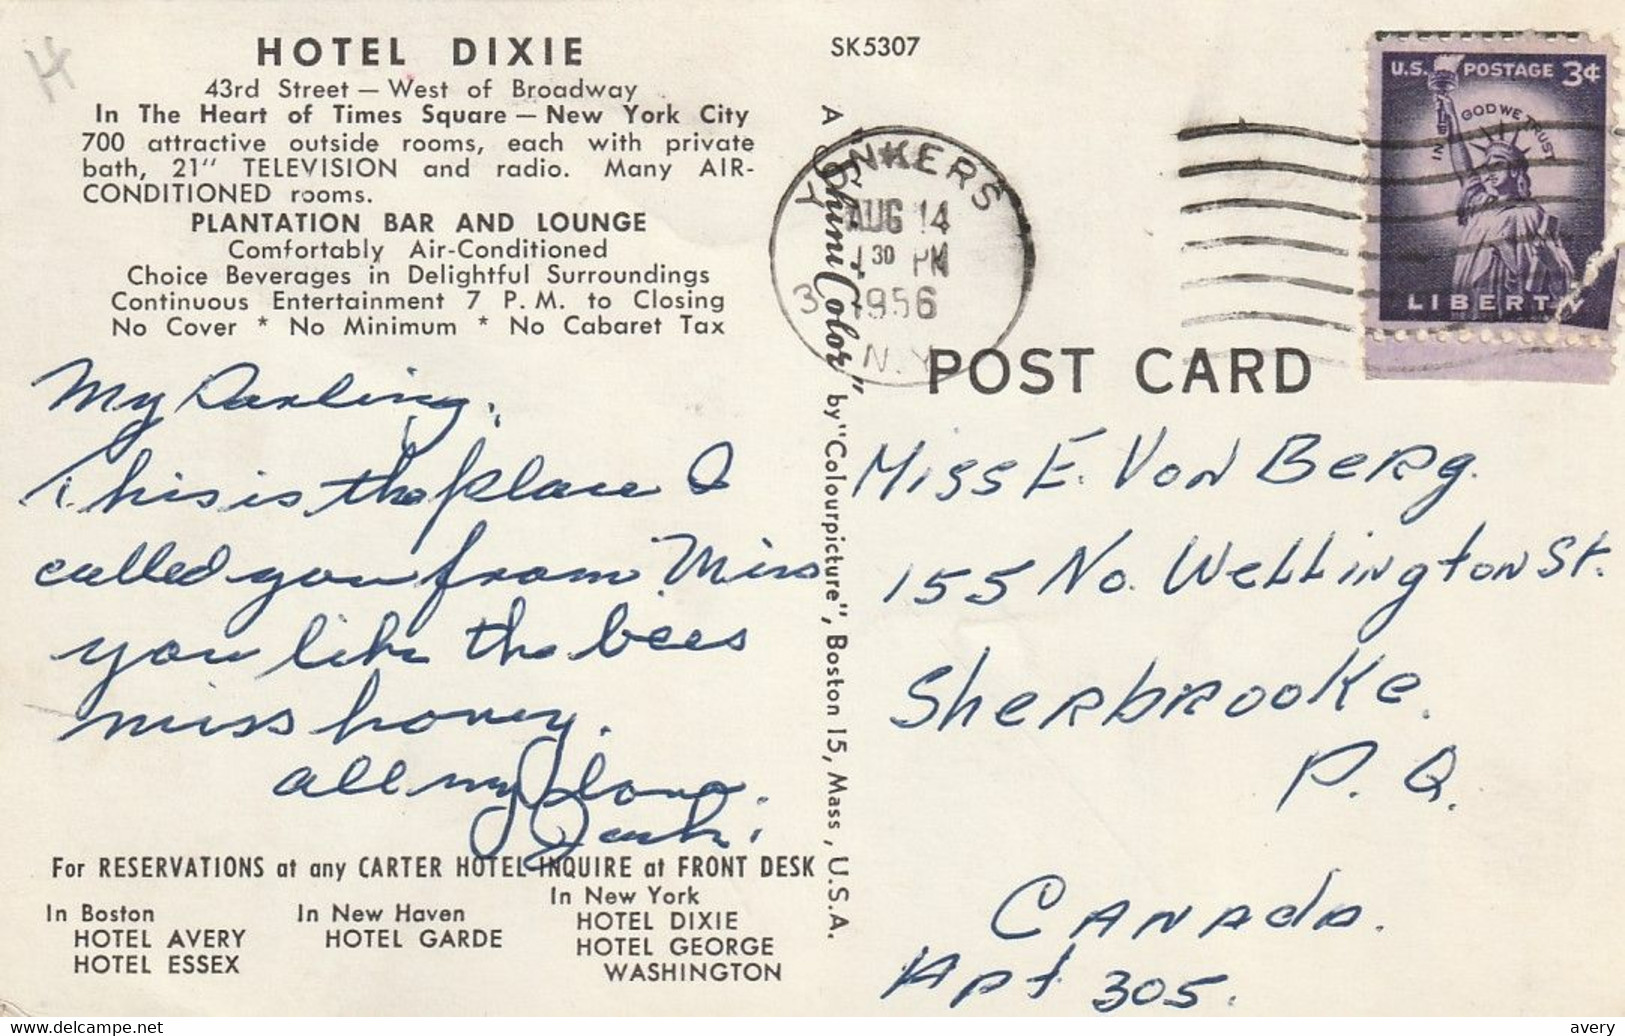 HOTEL DIXIE
43rd Street — West of Broadway
In The Heart of Times Square — New York City
700 attractive outside rooms, each with private
bath, 21" TELEVISION and radio. Many AIR-
CONDITIONED rooms.
PLANTATION BAR AND LOUNGE
Comfortably Air-Conditioned
Choice Beverages in Delightful Surroundings
Continuous Entertainment 7 P. M. to Closing
No Cover * No Minimum * No Cabaret Tax
My Darling.
This is the place I
called you from. Miss
you like the bees
miss honey.
all my love.
Jack.
For RESERVATIONS at any CARTER HOTEL INQUIRE at FRONT DESK
In Boston
HOTEL AVERY
HOTEL ESSEX
In New Haven
HOTEL GARDE
In New York
HOTEL DIXIE
HOTEL GEORGE
WASHINGTON
SK5307
by "Colourpicture", Boston 15, Mass., U.S.A.
YONKERS
AUG 14
30 PM
1956
3 N.Y.
U.S. POSTAGE 3¢
IN GOD WE TRUST
LIBERTY
POST CARD
Miss E. Von Berg.
155 No. Wellington St.
Sherbrooke.
P. Q.
Canada.
Apt 305.
www.delcampe.net
avery